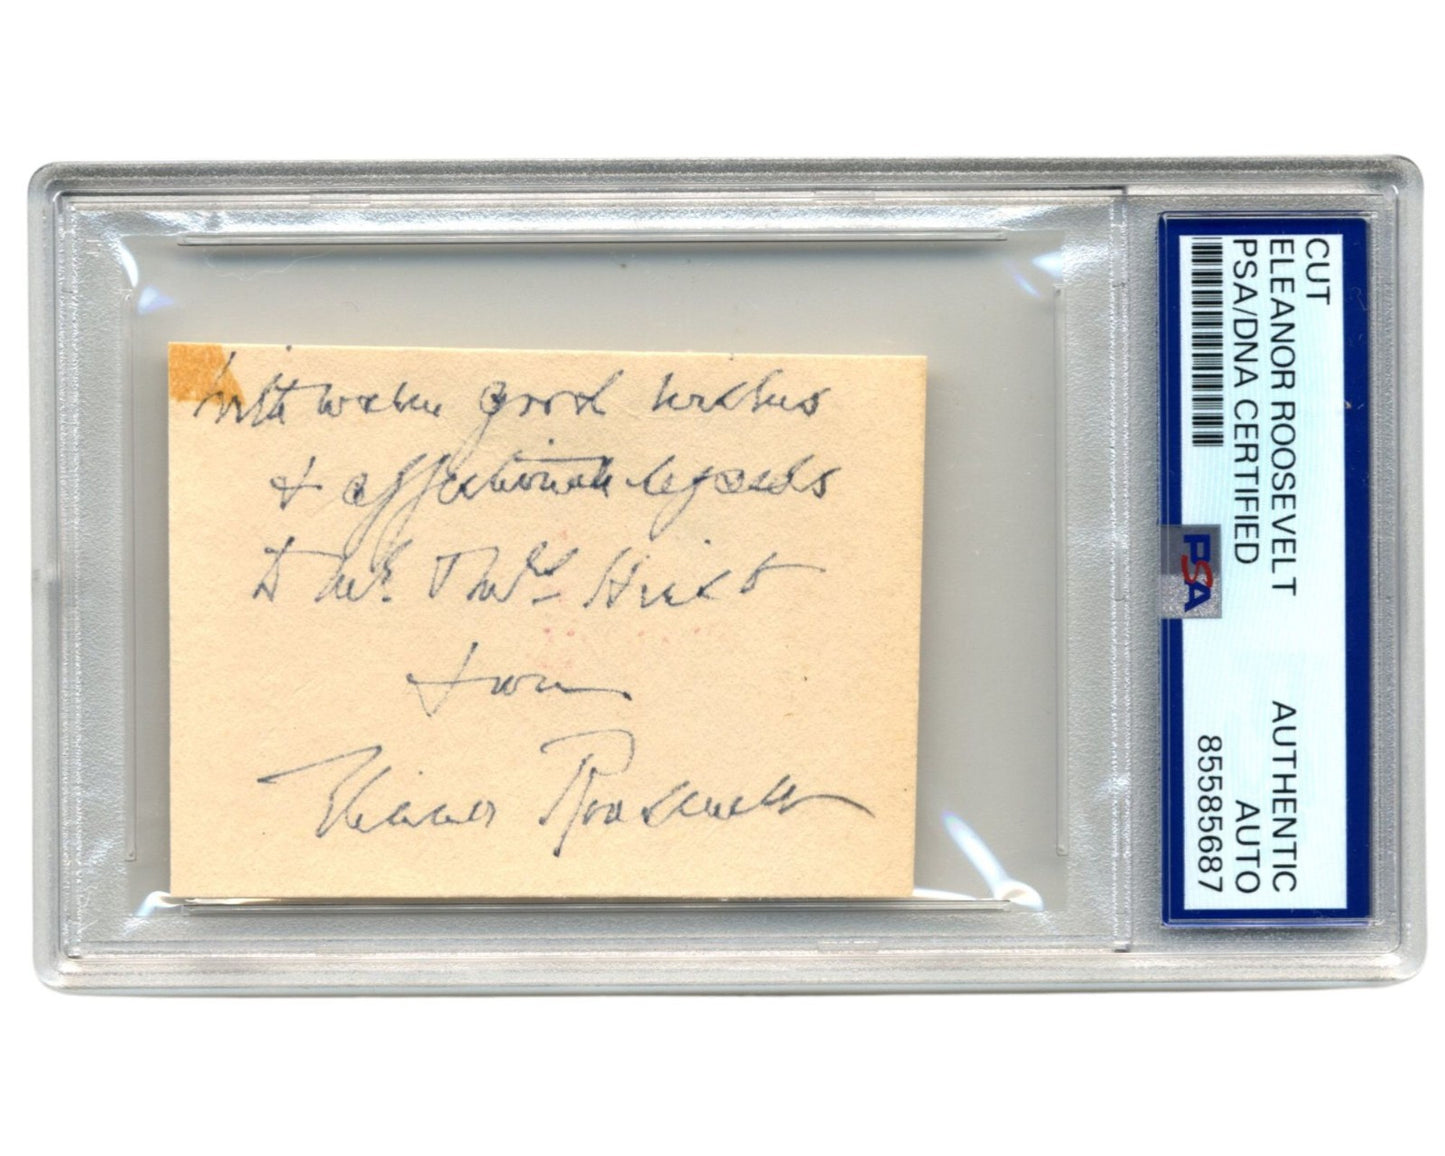 With warm good wishes
& affectionate regards
to Mr. & Mrs.
from
Eleanor Roosevelt
CUT
ELEANOR ROOSEVELT
PSA/DNA CERTIFIED
AUTHENTIC
AUTO
85585687
PSA